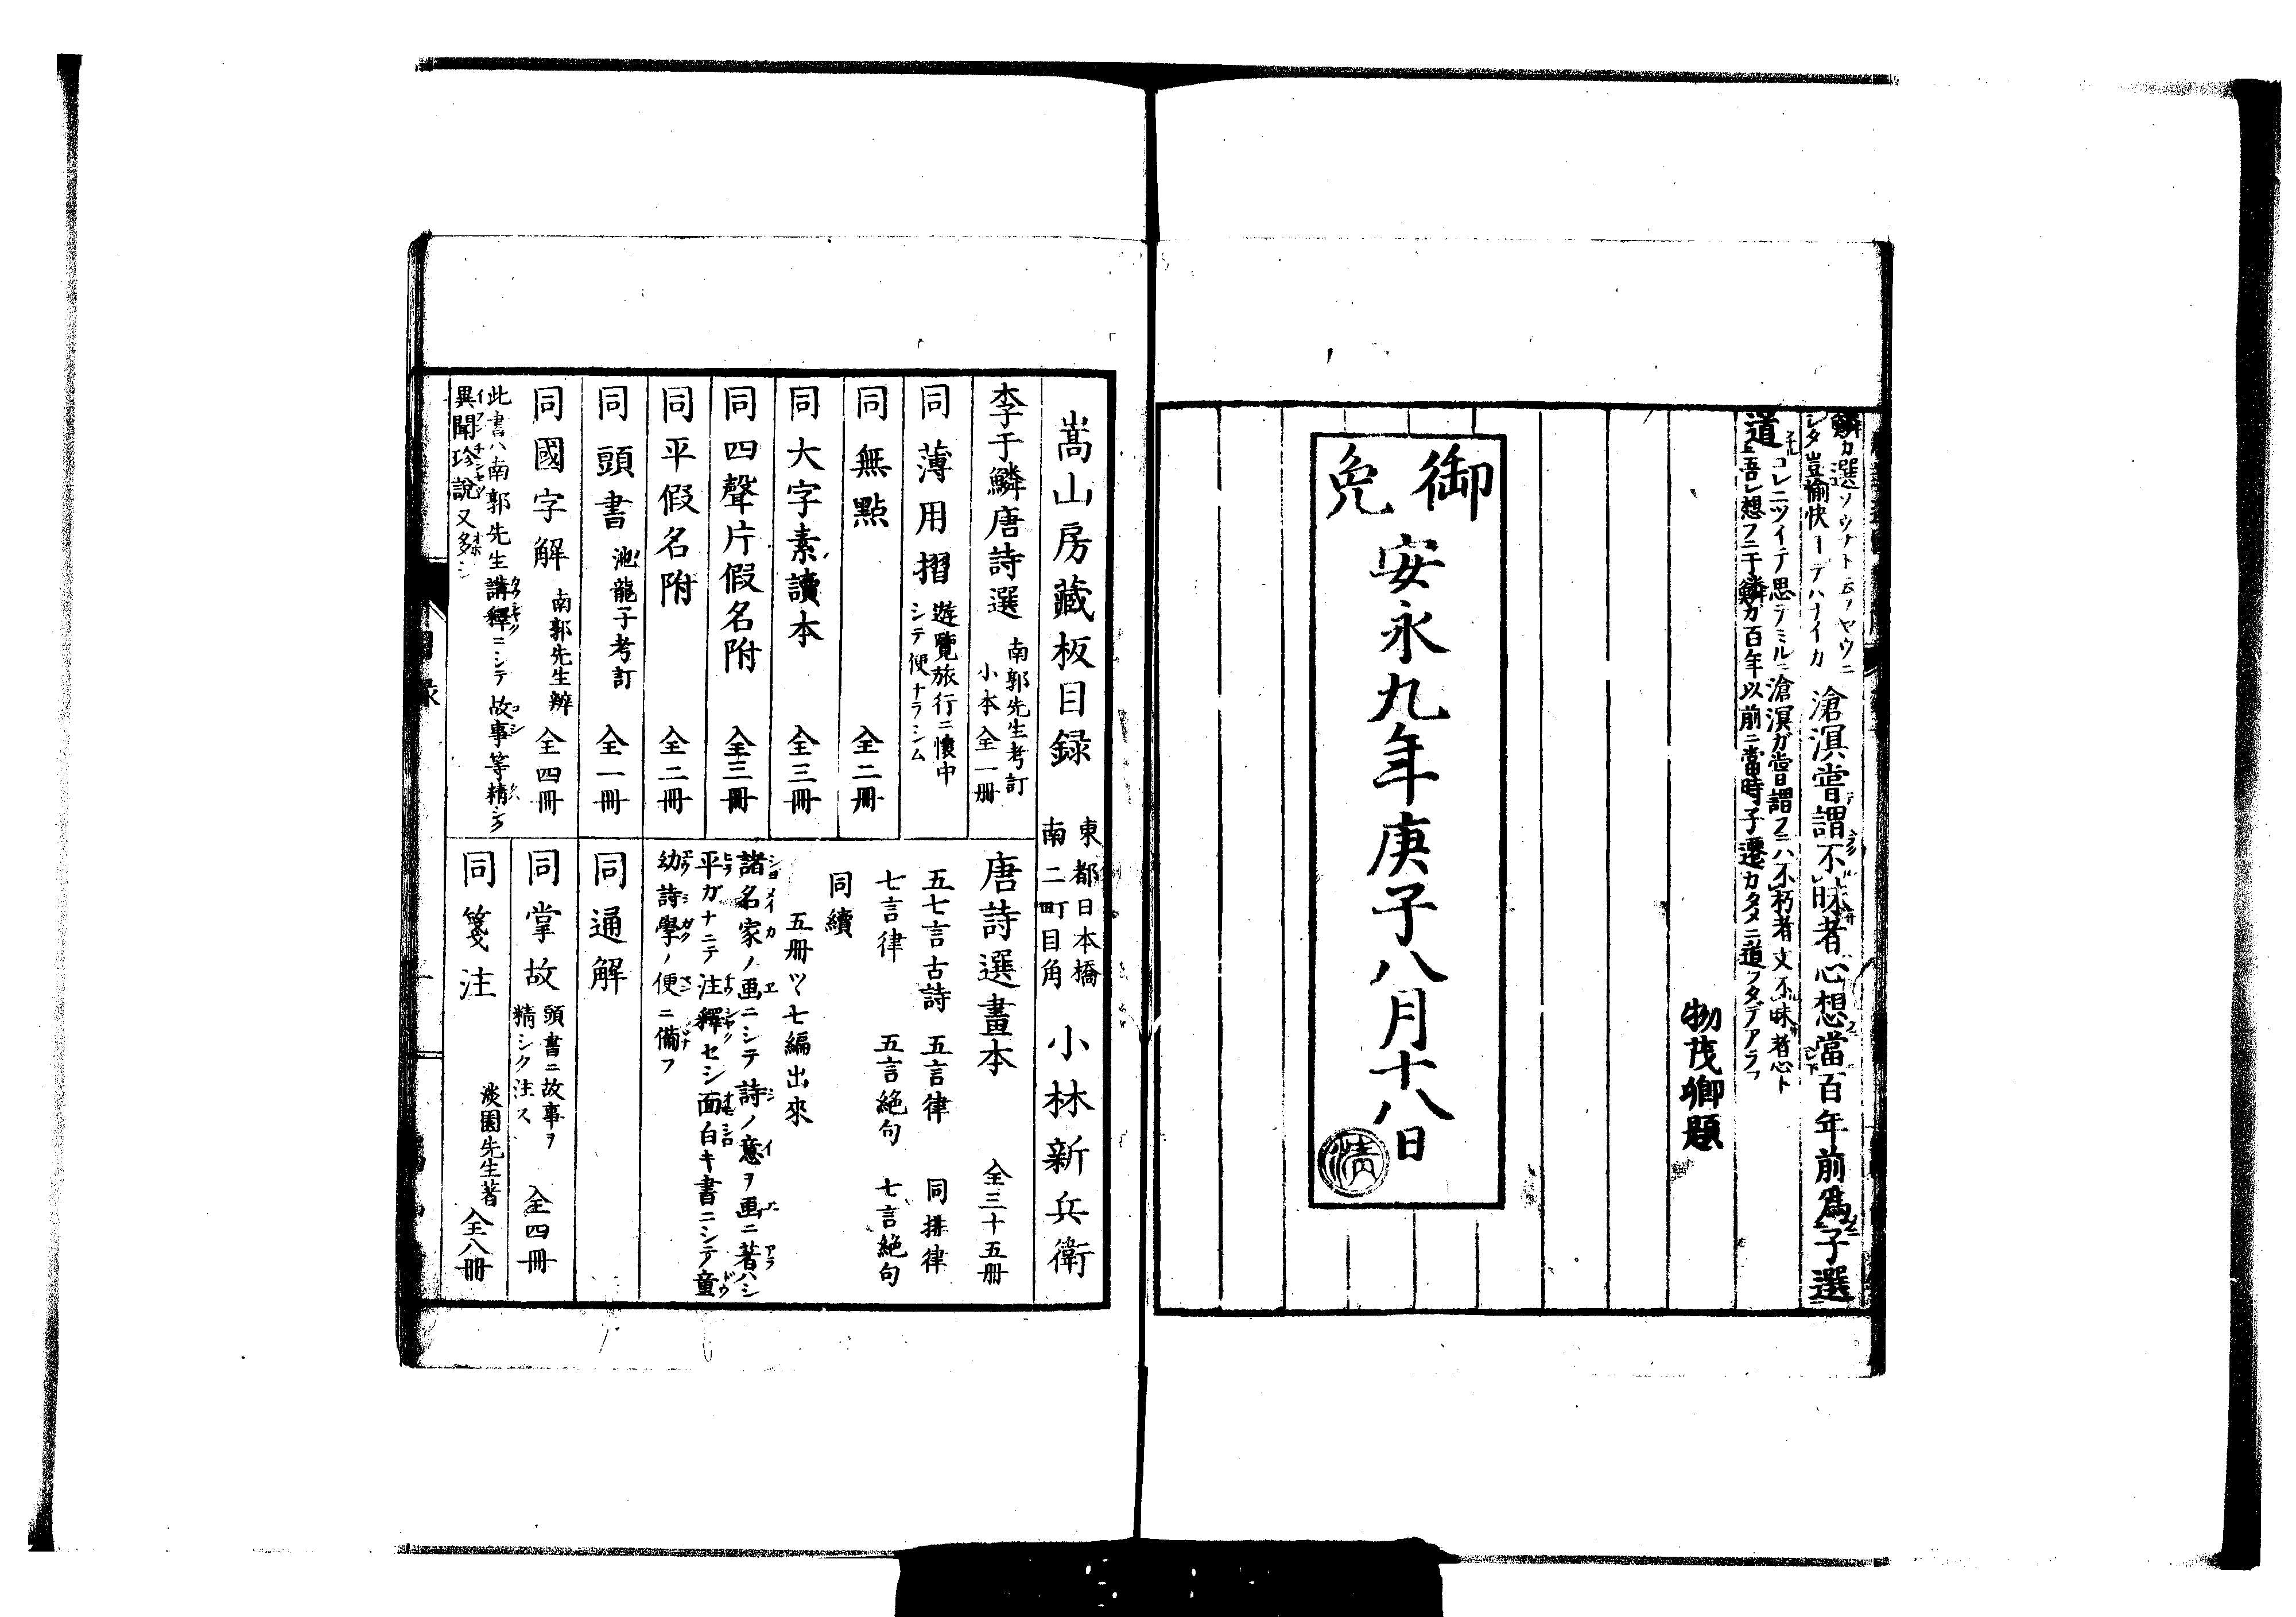 鱗カ選ソウナト云フヤウニ
シタ豈愉快ーデハナイカ
滄溟嘗謂不昧者心想當百年前爲子選
コレニツイテ思テミルニ滄溟ガ嘗謂フニハ不朽者文不昧者心ト
道吾レ想フニ于鱗ガ百年以前ニ當時子遷カタメニ道フタデアラフ
物茂卿題
御免
安永九年庚子八月十八日
清
嵩山房藏板目録
東都日本橋
南二町目角
小林新兵衛
李于鱗唐詩選
南郭先生考訂
小本全一册
同薄用摺
遊覽旅行ニ懷中
シテ便ナラシム
同無點 全二册
同大字素讀本 全三冊
同四聲片假名附 全三冊
同平假名附 全二冊
同頭書 池龍子考訂 全一冊
同國字解 南郭先生辨 全四冊
此書ハ南郭先生講釋ニシテ故事等精シク
異聞珍說又多シ
唐詩選畫本 全三十五册
五七言古詩 五言律 同排律
七言律 五言絶句 七言絶句
同續
五册ツヽ七編出來
諸名家ノ画ニシテ詩ノ意ヲ画ニ著ハシ
平ガナニテ注釋セシ面白キ書ニシテ童
幼詩學ノ便ニ備フ
同通解
同掌故
頭書ニ故事ヲ
精シク注ス
全四冊
同箋注 淡園先生著 全八冊